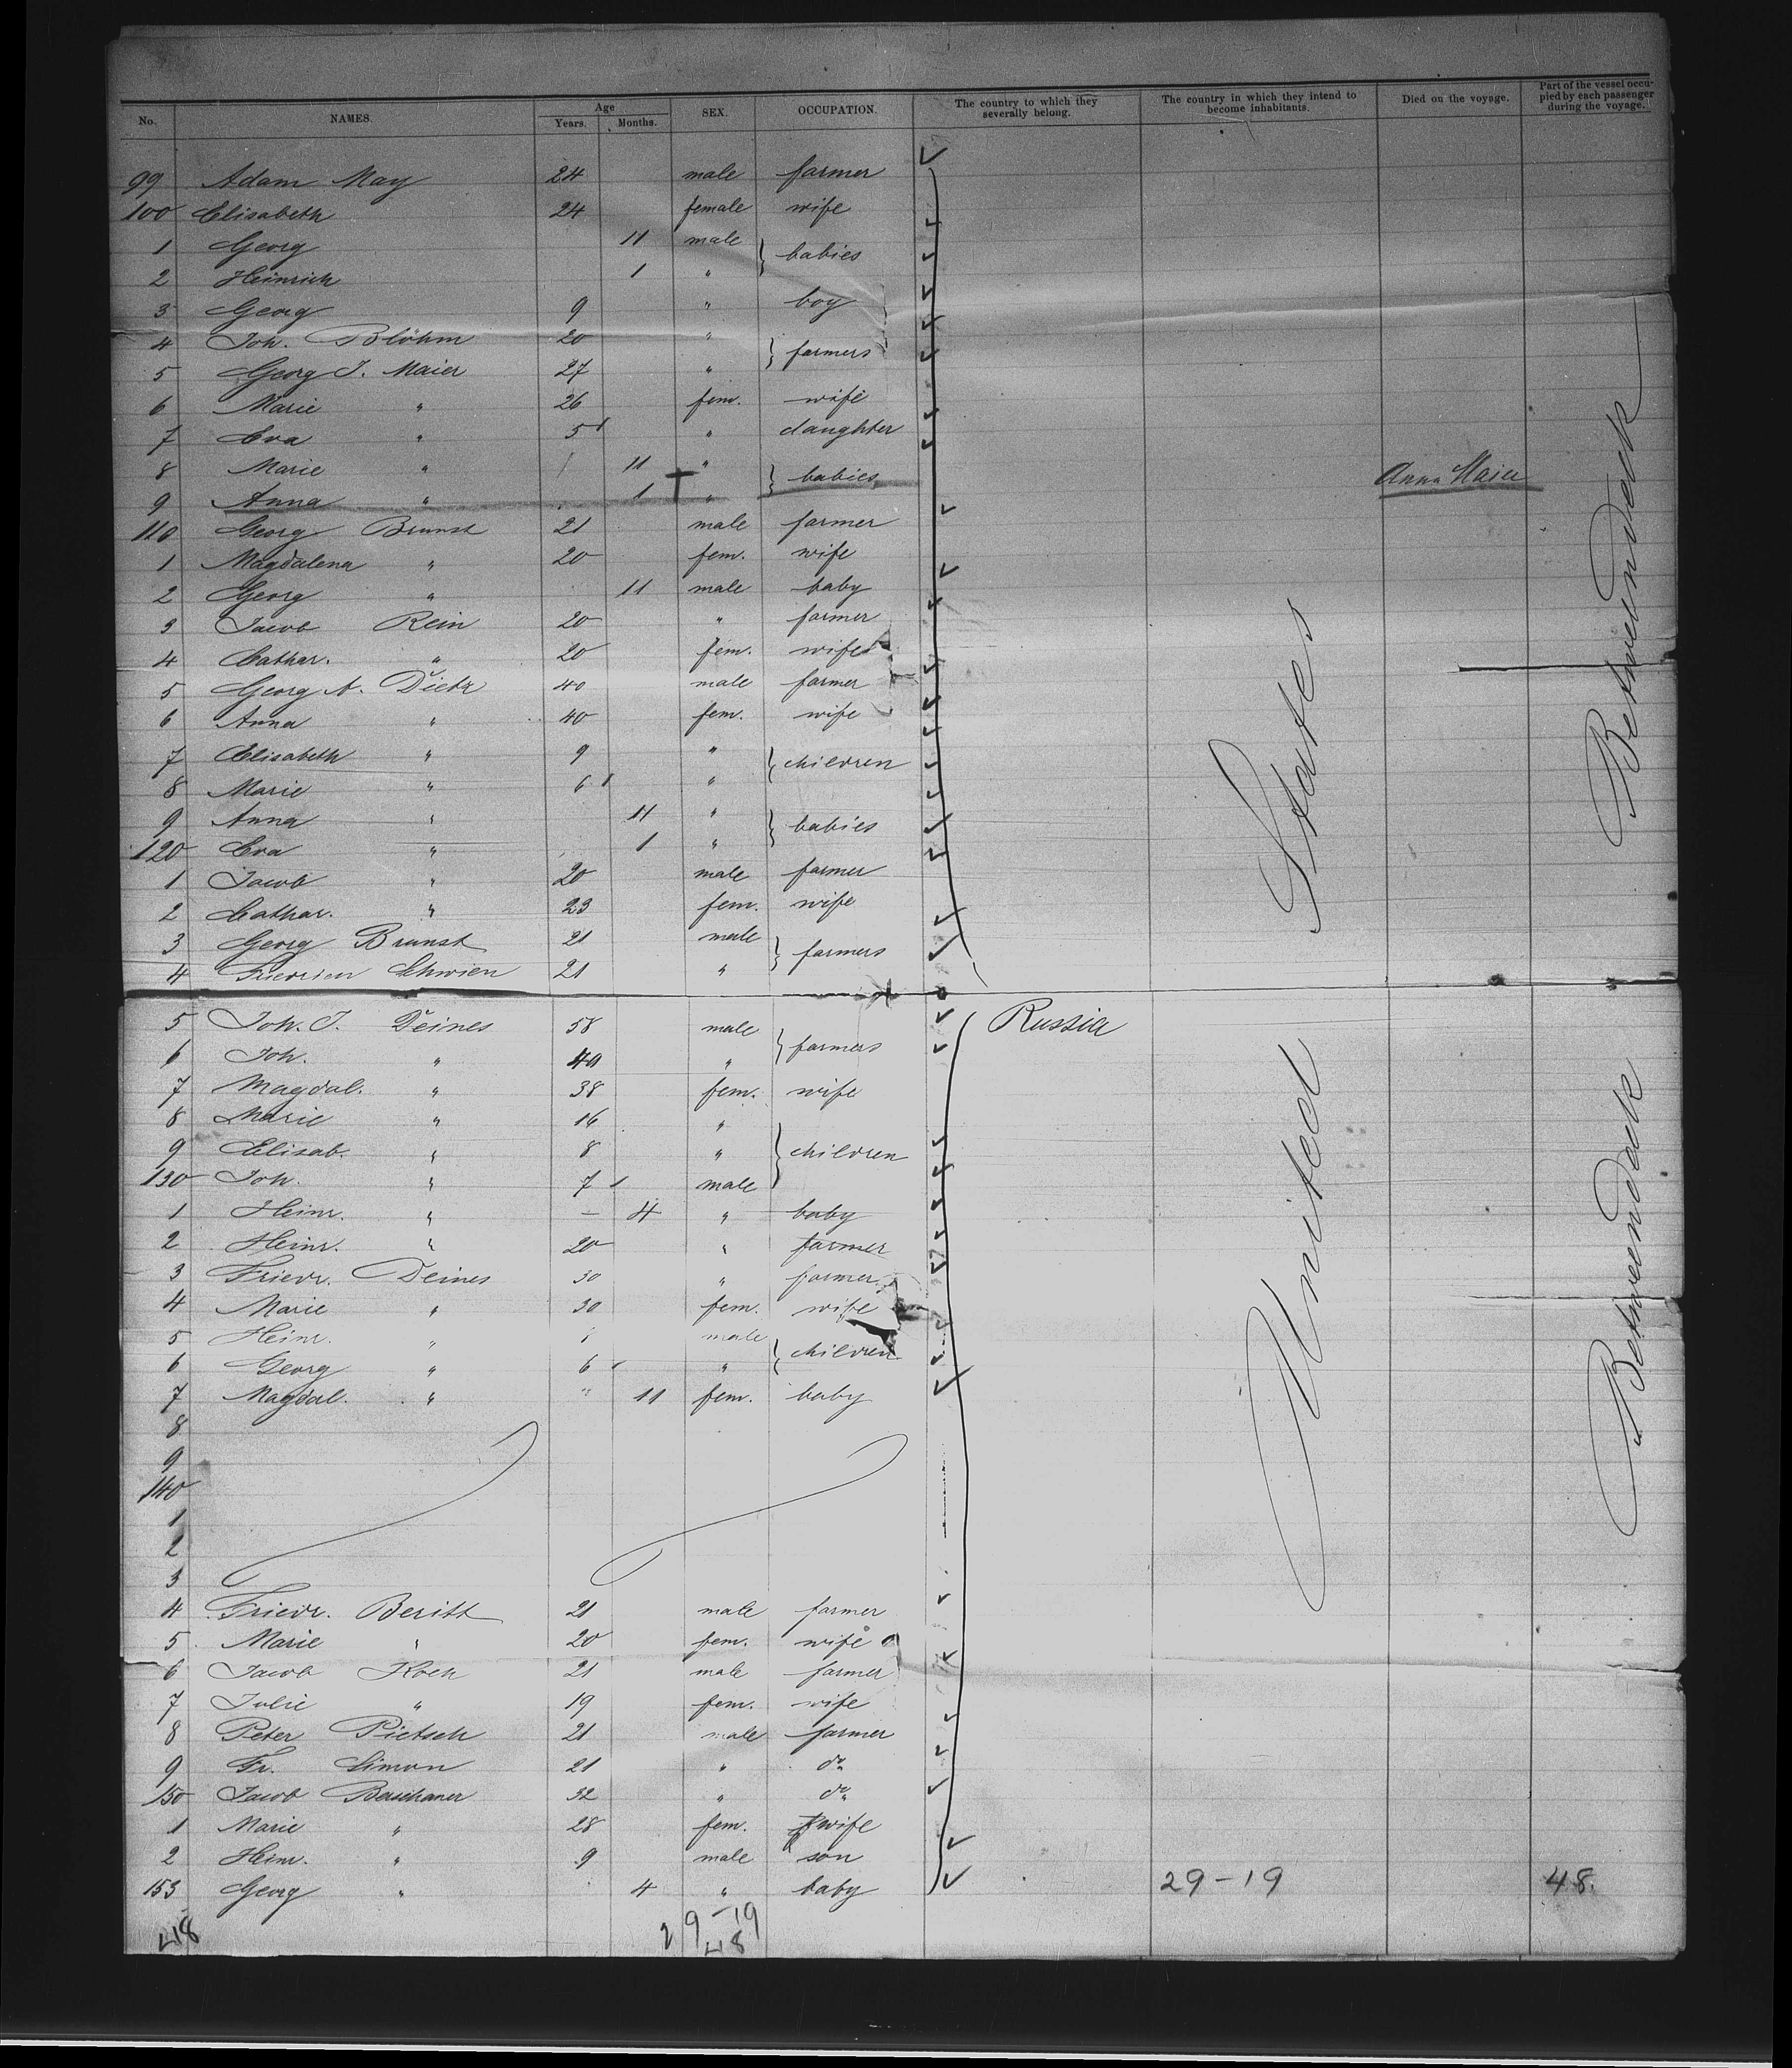 No. NAMES. Age Years. Months. SEX. OCCUPATION. The country to which they severally belong. The country in which they intend to become inhabitants. Died on the voyage. Part of the vessel occupied by each passenger during the voyage.
99 Adam May 24 male farmer
100 Elisabeth 24 female wife
1 Georg 11 male } babies
2 Heinrich 1 "
3 Georg 9 " boy
4 Joh. Blöhm 20 " } farmers
5 Georg J. Maier 27 "
6 Marie " 26 fem. wife
7 Eva " 5 " daughter
8 Marie " 11 " } babies
9 Anna " 1 † " Anna Maier
110 Georg Brunst 21 male farmer
1 Magdalena " 20 fem. wife
2 Georg " 11 male baby
3 Jacob Rein 20 " farmer
4 Cathar. " 20 fem. wife
5 Georg A. Dietz 40 male farmer
6 Anna " 40 fem. wife
7 Elisabeth " 9 " } children
8 Marie " 6 "
9 Anna " 11 " } babies
120 Eva " 1 "
1 Jacob " 20 male farmer
2 Cathar. " 23 fem. wife
3 Georg Brunst 21 male } farmers
4 Friedrich Schwien 21 "
5 Joh. J. Deines 58 male } farmers Russia United States Between Deck
6 Joh. " 40 "
7 Magdal. " 38 fem. wife
8 Marie " 16 " } children
9 Elisab. " 8 "
130 Joh. " 7 male
1 Heinr. " - 4 " baby
2 Heinr. " 20 " farmer
3 Friedr. Deines 30 " farmer
4 Marie " 30 fem. wife Between Deck
5 Heinr. " male } children
6 Georg " 6 "
7 Magdal. " " 11 fem. baby
8
9
140
1
2
3
4 Friedr. Beritt 21 male farmer
5 Marie " 20 fem. wife
6 Jacob Koch 21 male farmer
7 Julie " 19 fem. wife
8 Peter Pietsch 21 male farmer
9 Fr. Simon 21 " do
150 Jacob 32 " do
1 Marie " 28 fem. wife
2 Heinr. " 9 male son
153 Georg " 4 " baby 29-19 48.
48 29-19
48